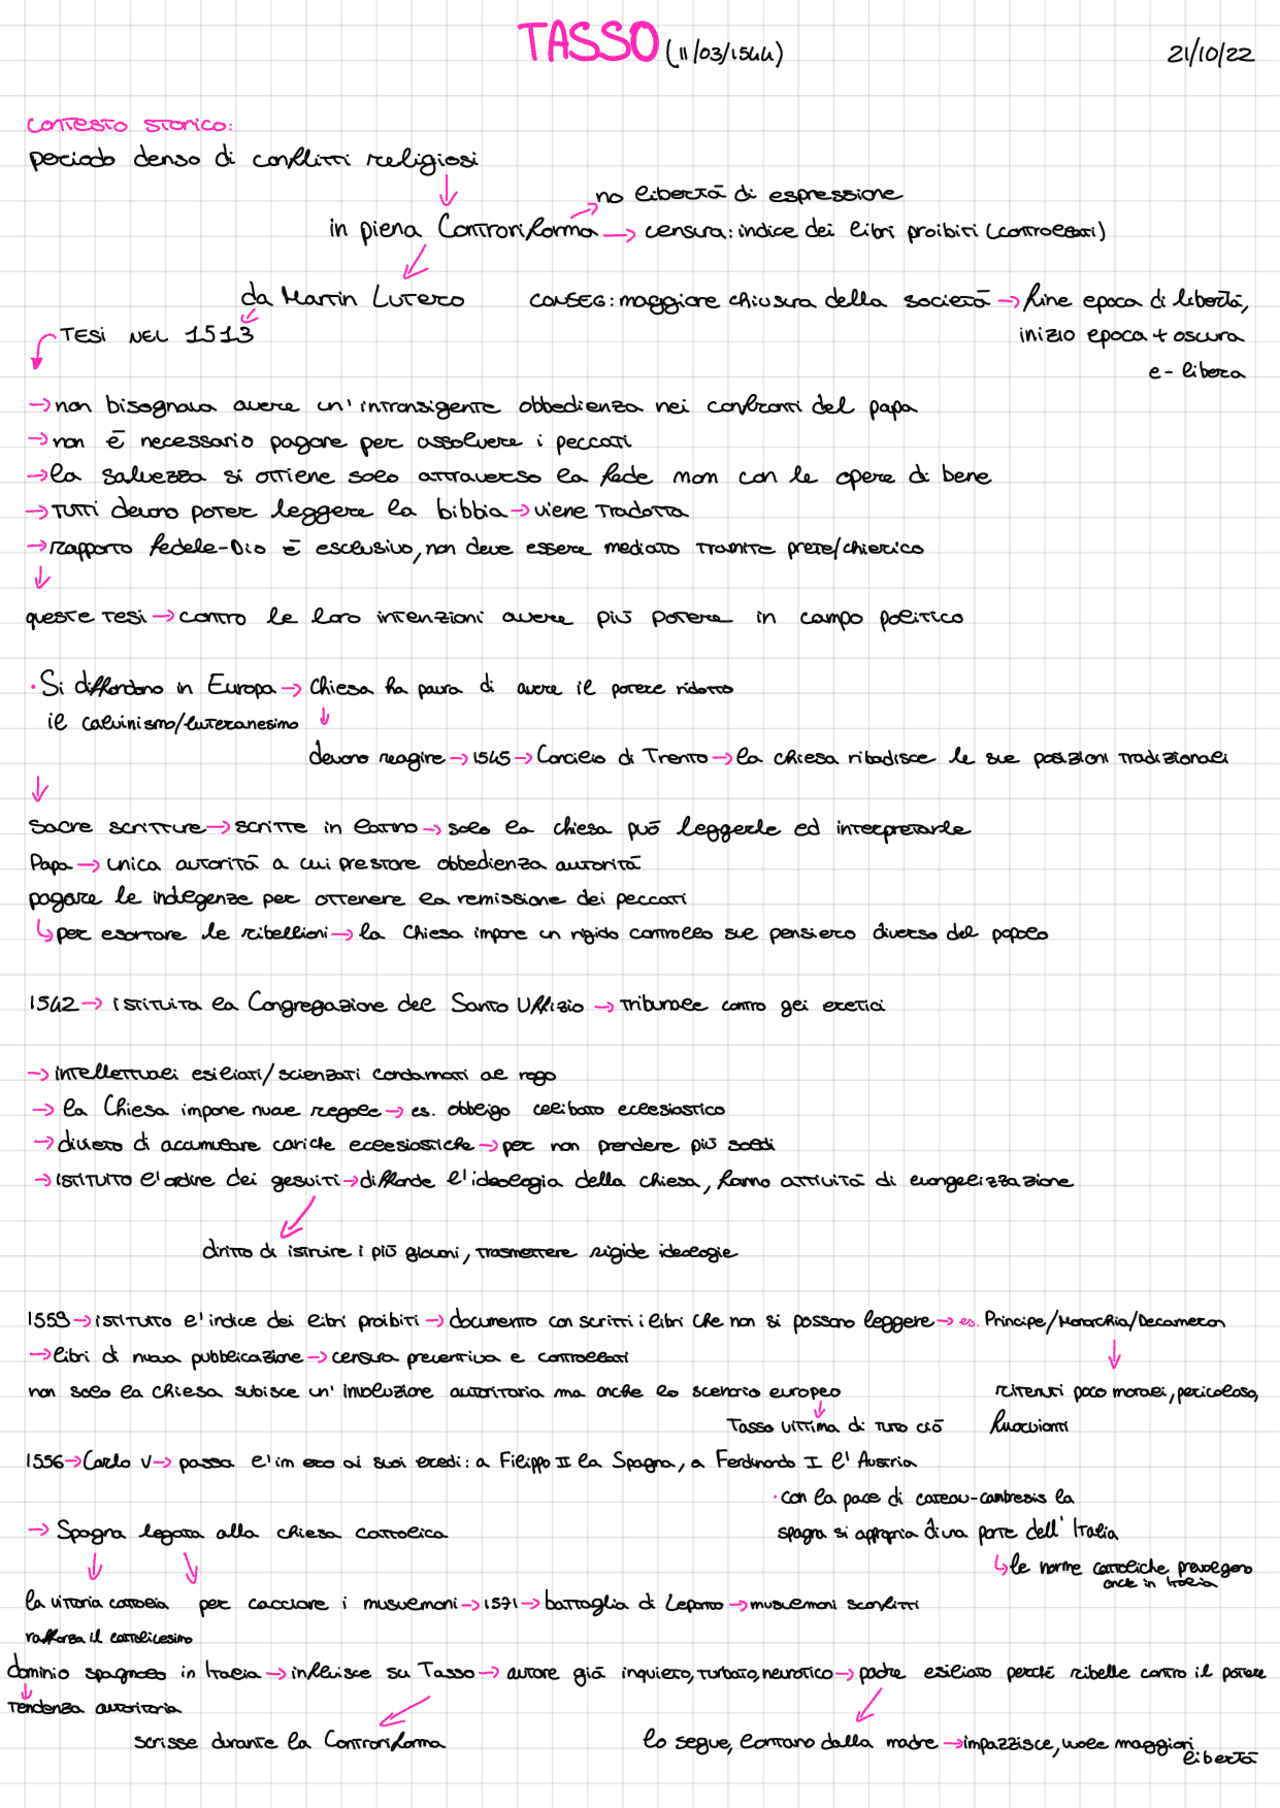 TASSO (11/03/1544)
21/10/22
contesto storico:
periodo denso di conflitti religiosi
no libertà di espressione
in piena Controriforma → censura: indice dei libri proibiti (controllati)
da Martin Lutero
CONSEG: maggiore chiusura della società → fine epoca di libertà,
TESI NEL 1513
inizio epoca + oscura
e - libera
→ non bisognava avere un'intransigente obbedienza nei confronti del papa
→ non è necessario pagare per assolvere i peccati
→ la salvezza si ottiene solo attraverso la fede non con le opere di bene
→ TUTTI devono poter leggere la bibbia → viene tradotta
→ rapporto fedele-Dio è esclusivo, non deve essere mediato tramite prete/chierico
queste tesi → contro le loro intenzioni avere più potere in campo politico
· Si diffondono in Europa → Chiesa ha paura di avere il potere ridotto
il calvinismo/luteranesimo
devono reagire → 1545 → Concilio di Trento → la chiesa ribadisce le sue posizioni tradizionali
sacre scritture → scritte in latino → solo la chiesa può leggerle ed interpretarle
Papa → unica autorità a cui prestare obbedienza autorità
pagare le indegenze per ottenere la remissione dei peccati
per esortare le ribellioni → la Chiesa impone un rigido controllo sul pensiero diverso del popolo
1542 → istituita la Congregazione del Santo Uffizio → tribunale contro gli eretici
→ intellettuali esiliati/scienzati condannati al rogo
→ la Chiesa impone nuove regole → es. obbligo celibato ecclesiastico
→ divieto di accumulare cariche ecclesiastiche → per non prendere più soldi
→ istituito l'ordine dei gesuiti → diffonde l'ideologia della chiesa, fanno attività di evangelizzazione
diritto di istruire i più giovani, trasmettere rigide ideologie
1559 → istituito l'indice dei libri proibiti → documento con scritti i libri che non si possono leggere → es. Principe/Monarchia/Decameron
→ libri di nuova pubblicazione → censura preventiva e controllati
non solo la chiesa subisce un'involuzione autoritaria ma anche lo scenario europeo
ritenuti poco morali, pericoloso,
Tasso vittima di tutto ciò
fuorvianti
1556 → Carlo V → passa l'im ero ai suoi eredi: a Filippo II la Spagna, a Ferdinando I l'Austria
· con la pace di cateau-cambresis la
→ Spagna legata alla chiesa cattolica
spagna si appropria di una parte dell'Italia
le norme cattoliche prevalgono
anche in Italia
la vittoria cattolica
per cacciare i musulmani → 1571 → battaglia di Lepanto → musulmani sconfitti
rafforza il cattolicesimo
dominio spagnolo in Italia → influisce su Tasso → autore già inquieto, turbato, neurotico → padre esiliato perché ribelle contro il potere
tendenza autoritaria
scrisse durante la Controriforma
lo segue, lontano dalla madre → impazzisce, vuole maggiori
libertà